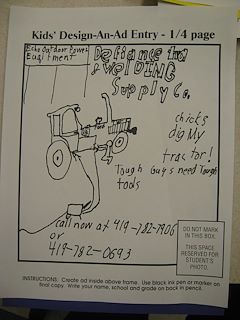 Kids' Design-An-Ad Entry - 1/4 page
Echo Outdoor Power
Equitment
Defiance Ind
& WELDING
Supply Co.
chicks
dig My
tractor!
Tough Guys need Tough
tools
call now at 419-782-1906
or
419-782-0693
DO NOT MARK
IN THIS BOX.
THIS SPACE
RESERVED FOR
STUDENT'S
PHOTO.
INSTRUCTIONS: Create ad inside above frame. Use black ink pen or marker on
final copy. Write your name, school and grade on back in pencil.